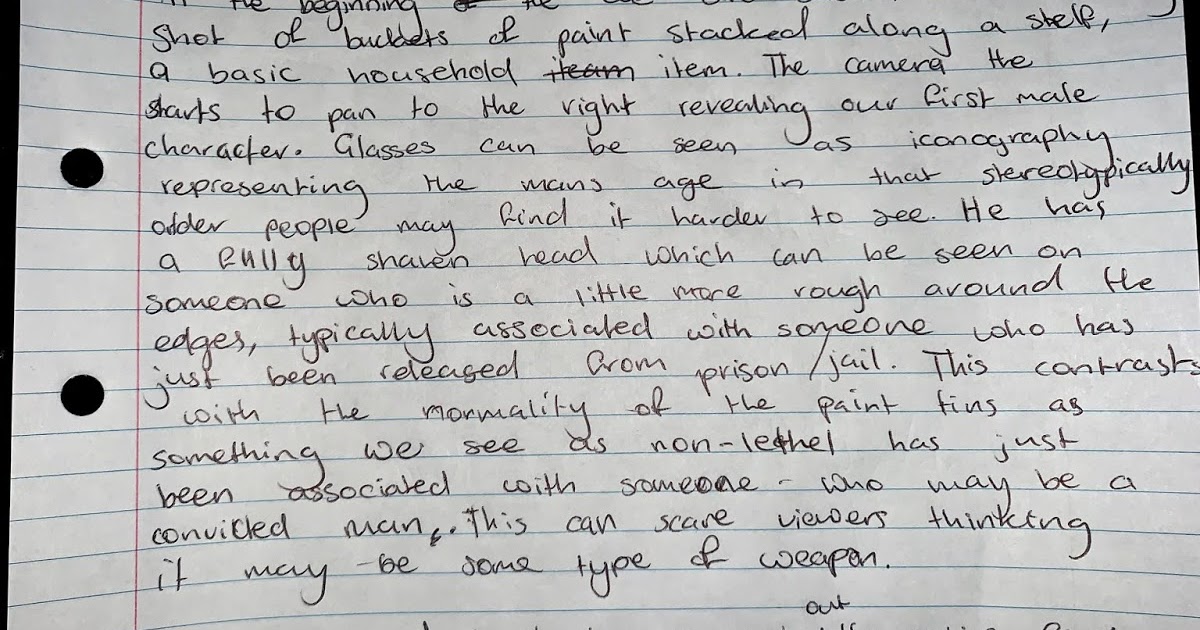 the beginning
Shot of buckets of paint stacked along a shelf,
a basic household item. The camera the
starts to pan to the right revealing our first male
character. Glasses can be seen as iconography
representing the mans age in that stereotypically
older people may find it harder to see. He has
a fully shaven head which can be seen on
someone who is a little more rough around the
edges, typically associated with someone who has
just been released from prison/jail. This contrasts
with the normality of the paint tins as
something we see as non-lethel has just
been associated with someone - who may be a
convicted man. This can scare viewers thinking
it may be some type of weapon.
out